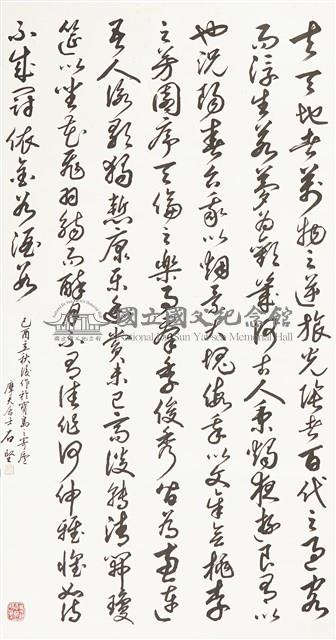 夫天地者萬物之逆旅光陰者百代之過客
而浮生若夢為歡幾何古人秉燭夜遊良有以
也況陽春召我以烟景大塊假我以文章會桃李
之芳園序天倫之樂事群季俊秀皆為惠連
吾人詠歌獨慚康樂幽賞未已高談轉清開瓊
筵以坐花飛羽觴而醉月不有佳作何伸雅懷如詩
不成罰依金谷酒數
己酉立秋後作於寶島之寄廬
摩天居士石堅
國立國父紀念館
National Dr. Sun Yat-sen Memorial Hall